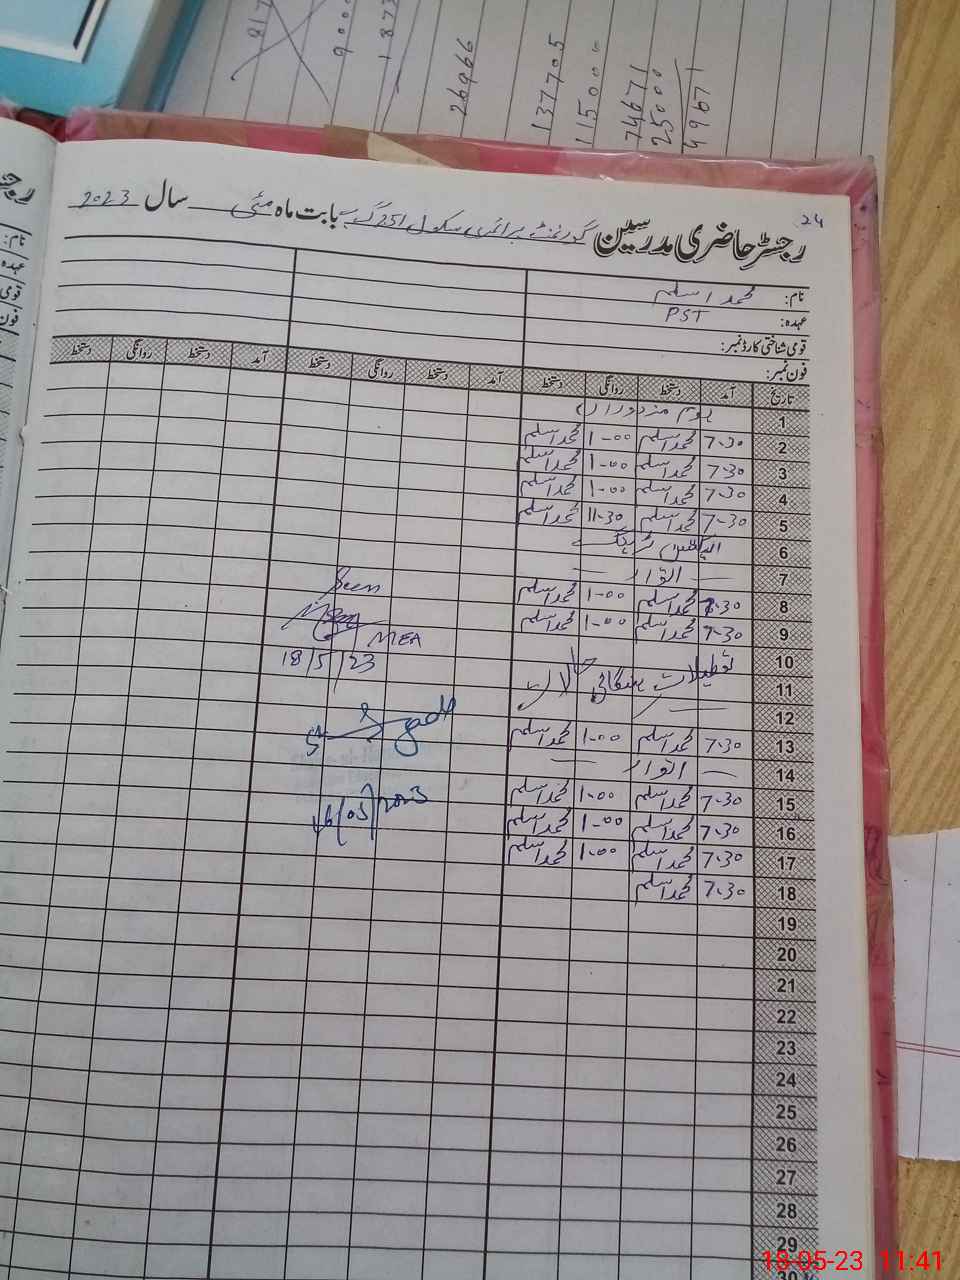 817
9000
1873
26966
137705
115000
74671
25000
49671
24
رجسٹر حاضری مدرسین گورنمنٹ پرائمری سکول 251 گ ب بابت ماہ مئی سال 2023
نام: محمد اسلم
عہدہ: PST
قومی شناختی کارڈ نمبر:
فون نمبر:
تاریخ آمد دستخط روانگی دستخط آمد دستخط روانگی دستخط آمد دستخط روانگی دستخط
1 یوم مزدوراں
2 7-30 محمد اسلم 1-00 محمد اسلم
3 7-30 محمد اسلم 1-00 محمد اسلم
4 7-30 محمد اسلم 1-00 محمد اسلم
5 7-30 محمد اسلم 11-30 محمد اسلم
6
7 اتوار
8 7-30 محمد اسلم 1-00 محمد اسلم
9 7-30 محمد اسلم 1-00 محمد اسلم
10 تعطیلات ہنگامی حالات
11
12
13 7-30 محمد اسلم 1-00 محمد اسلم
14 اتوار
15 7-30 محمد اسلم 1-00 محمد اسلم
16 7-30 محمد اسلم 1-00 محمد اسلم
17 7-30 محمد اسلم 1-00 محمد اسلم
18 7-30 محمد اسلم
19
20
21
22
23
24
25
26
27
28
29
30
Seen
MEA
18/5/23
16/05/2023
نام:
عہدہ
قومی
فون
18-05-23 11:41